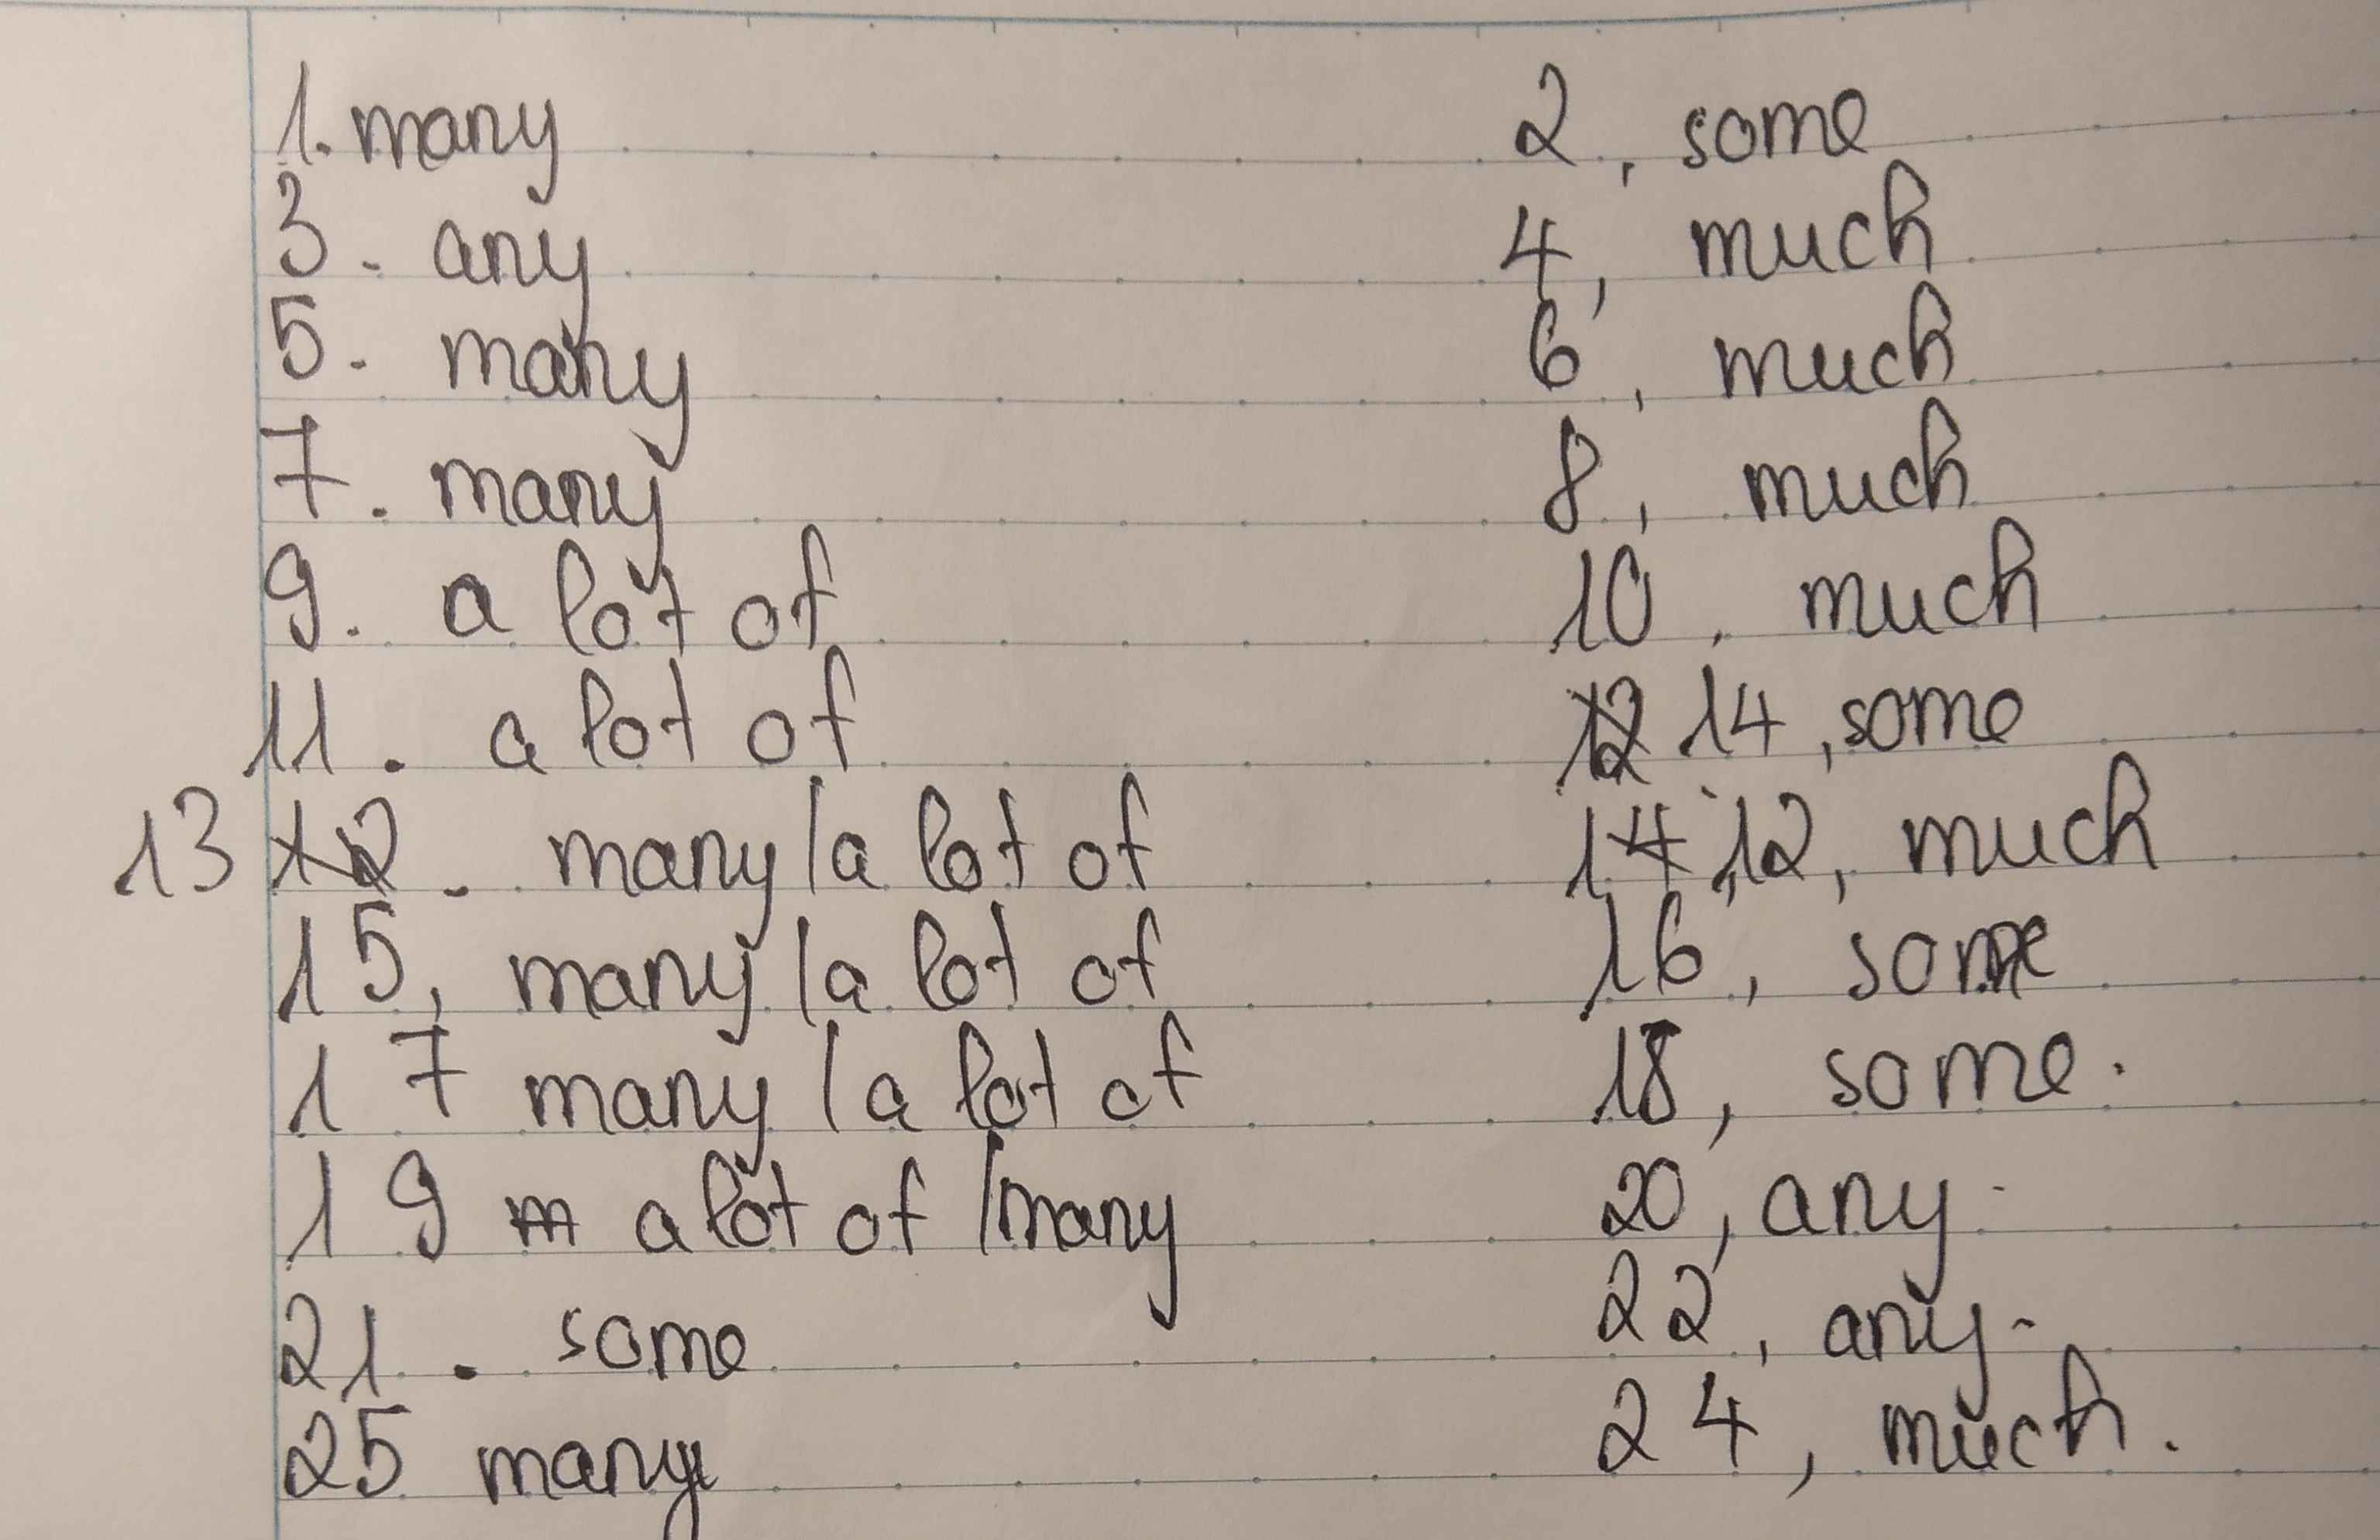 1. many 2, some
3. any 4, much
5. many 6, much
7. many 8, much
9. a lot of 10, much
11. a lot of 12 14, some
13 12. many / a lot of 14 12, much
15, many / a lot of 16, some
17 many / a lot of 18, some.
19 m a lot of / many 20, any.
21. some 22, any.
25 many 24, much.